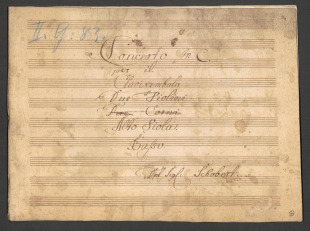 Concerto In C.
per il
Clavicembalo
Due Violini
Due Corni
Alto Viola.
Basso.
Del Sigl: Schobert